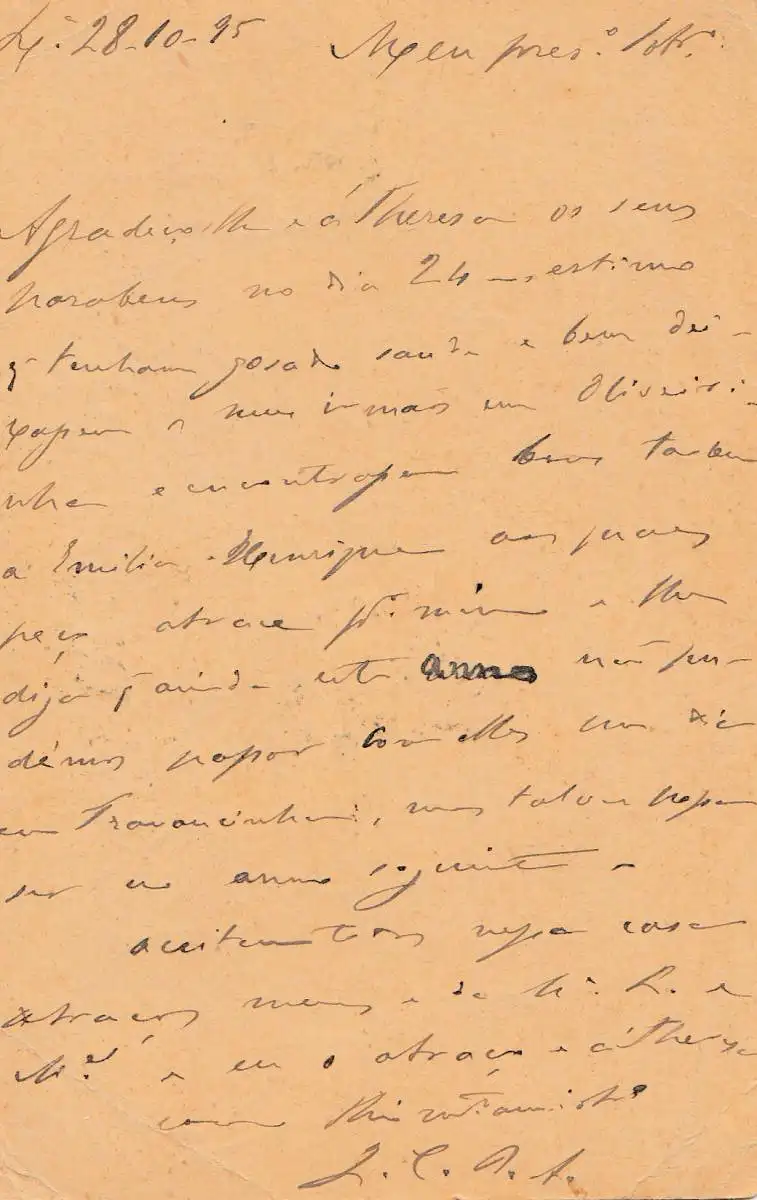 Lx.ª 28-10-95 Meu pres.º Sobr.º
Agradeço-lhe e á Thereza os seus
parabens no dia 24 - estimo
q tenham gosado saude e bem dei-
xassem os meus irmãos em Oliveiri-
nha e encontrassem bons tambem
a Emilia Henriqueta aos quaes
peço abrace p.r mim e lhes
diga q ainda este anno não pu-
démos passar com elles um dia
em Travancinha, mas talvez possa
ser no anno seguinte -
aceitem todos nessa casa
abraços meus e da M. L. e
M.el e eu o abraço e á Thereza
como Thio e m.to am.º obr.º
J. C. A. A.